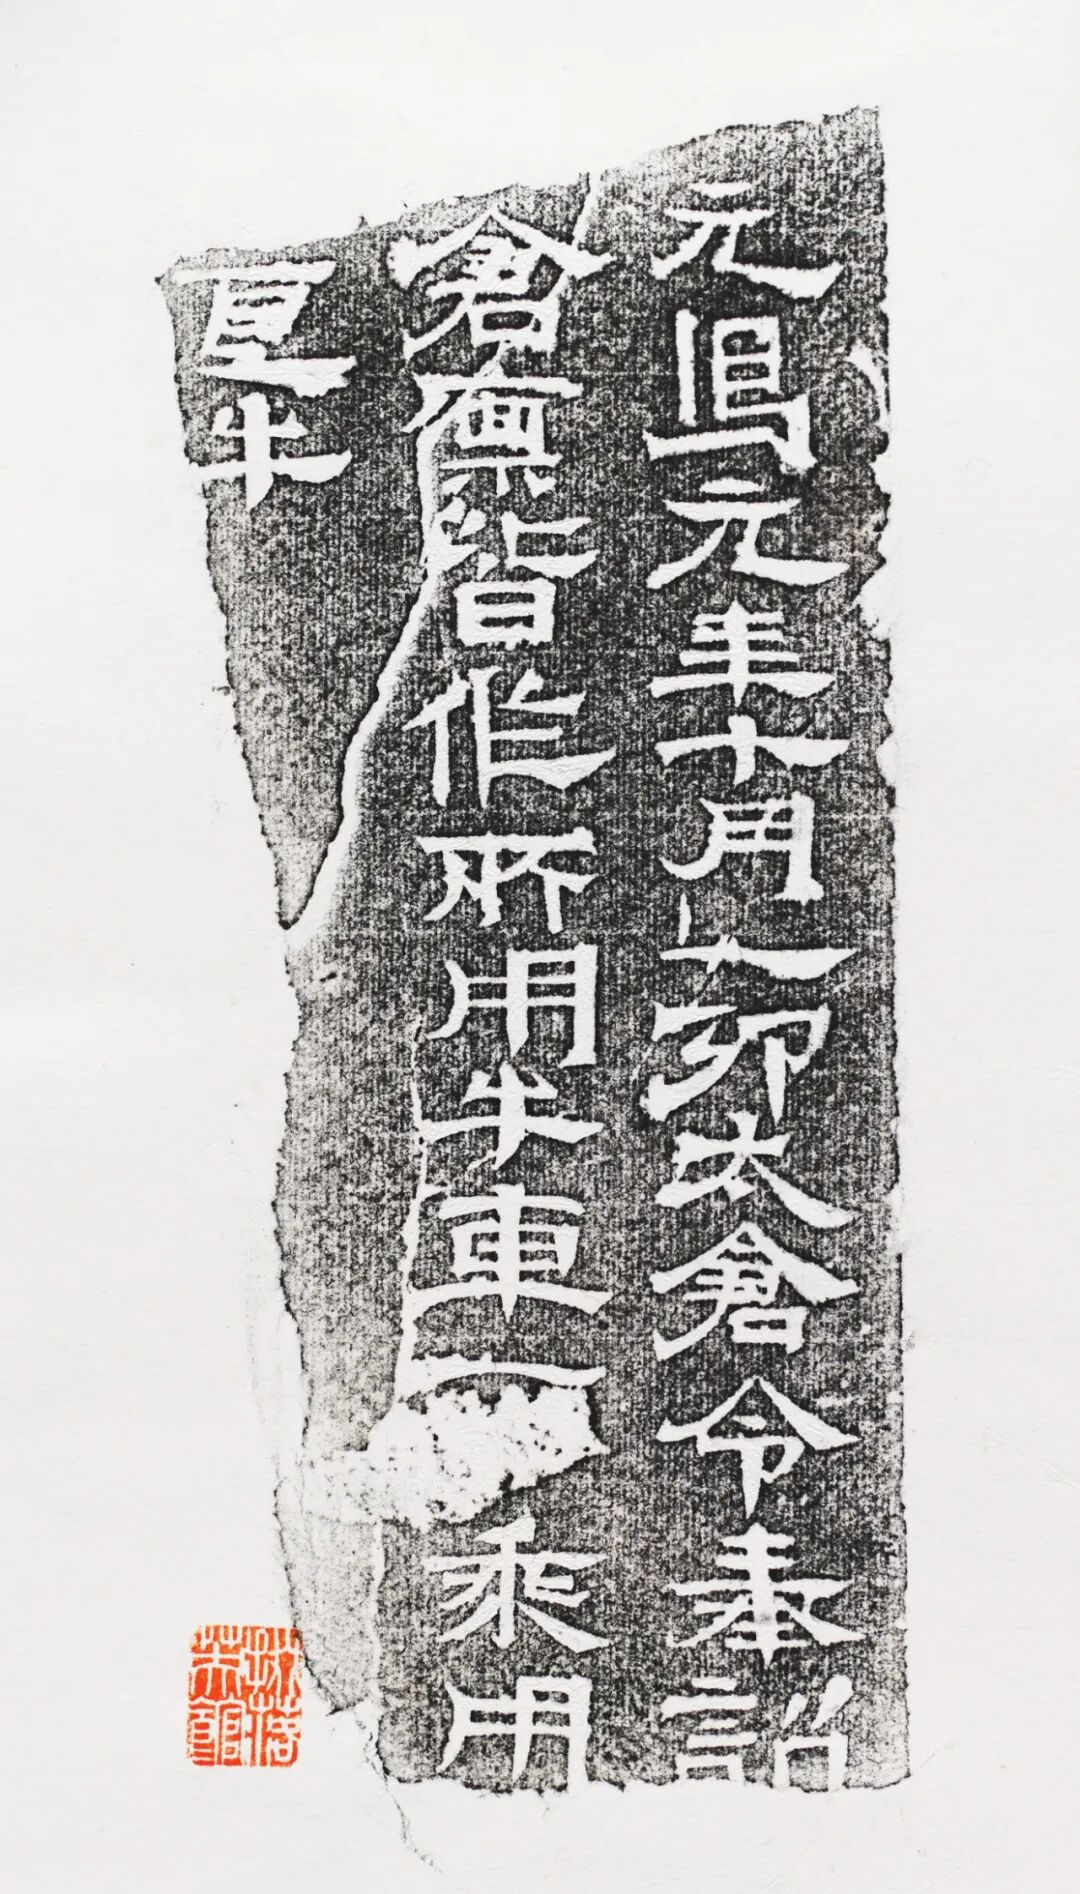 元鳳元年十月卯太倉令奉詔
倉廩皆作所用牛車乘用
直牛